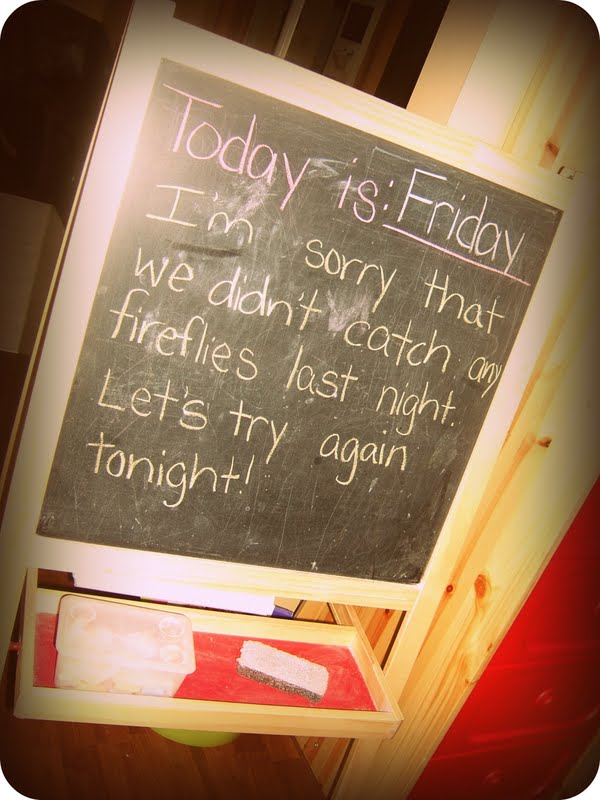 Today is: Friday
I'm sorry that
we didn't catch any
fireflies last night.
Let's try again
tonight!